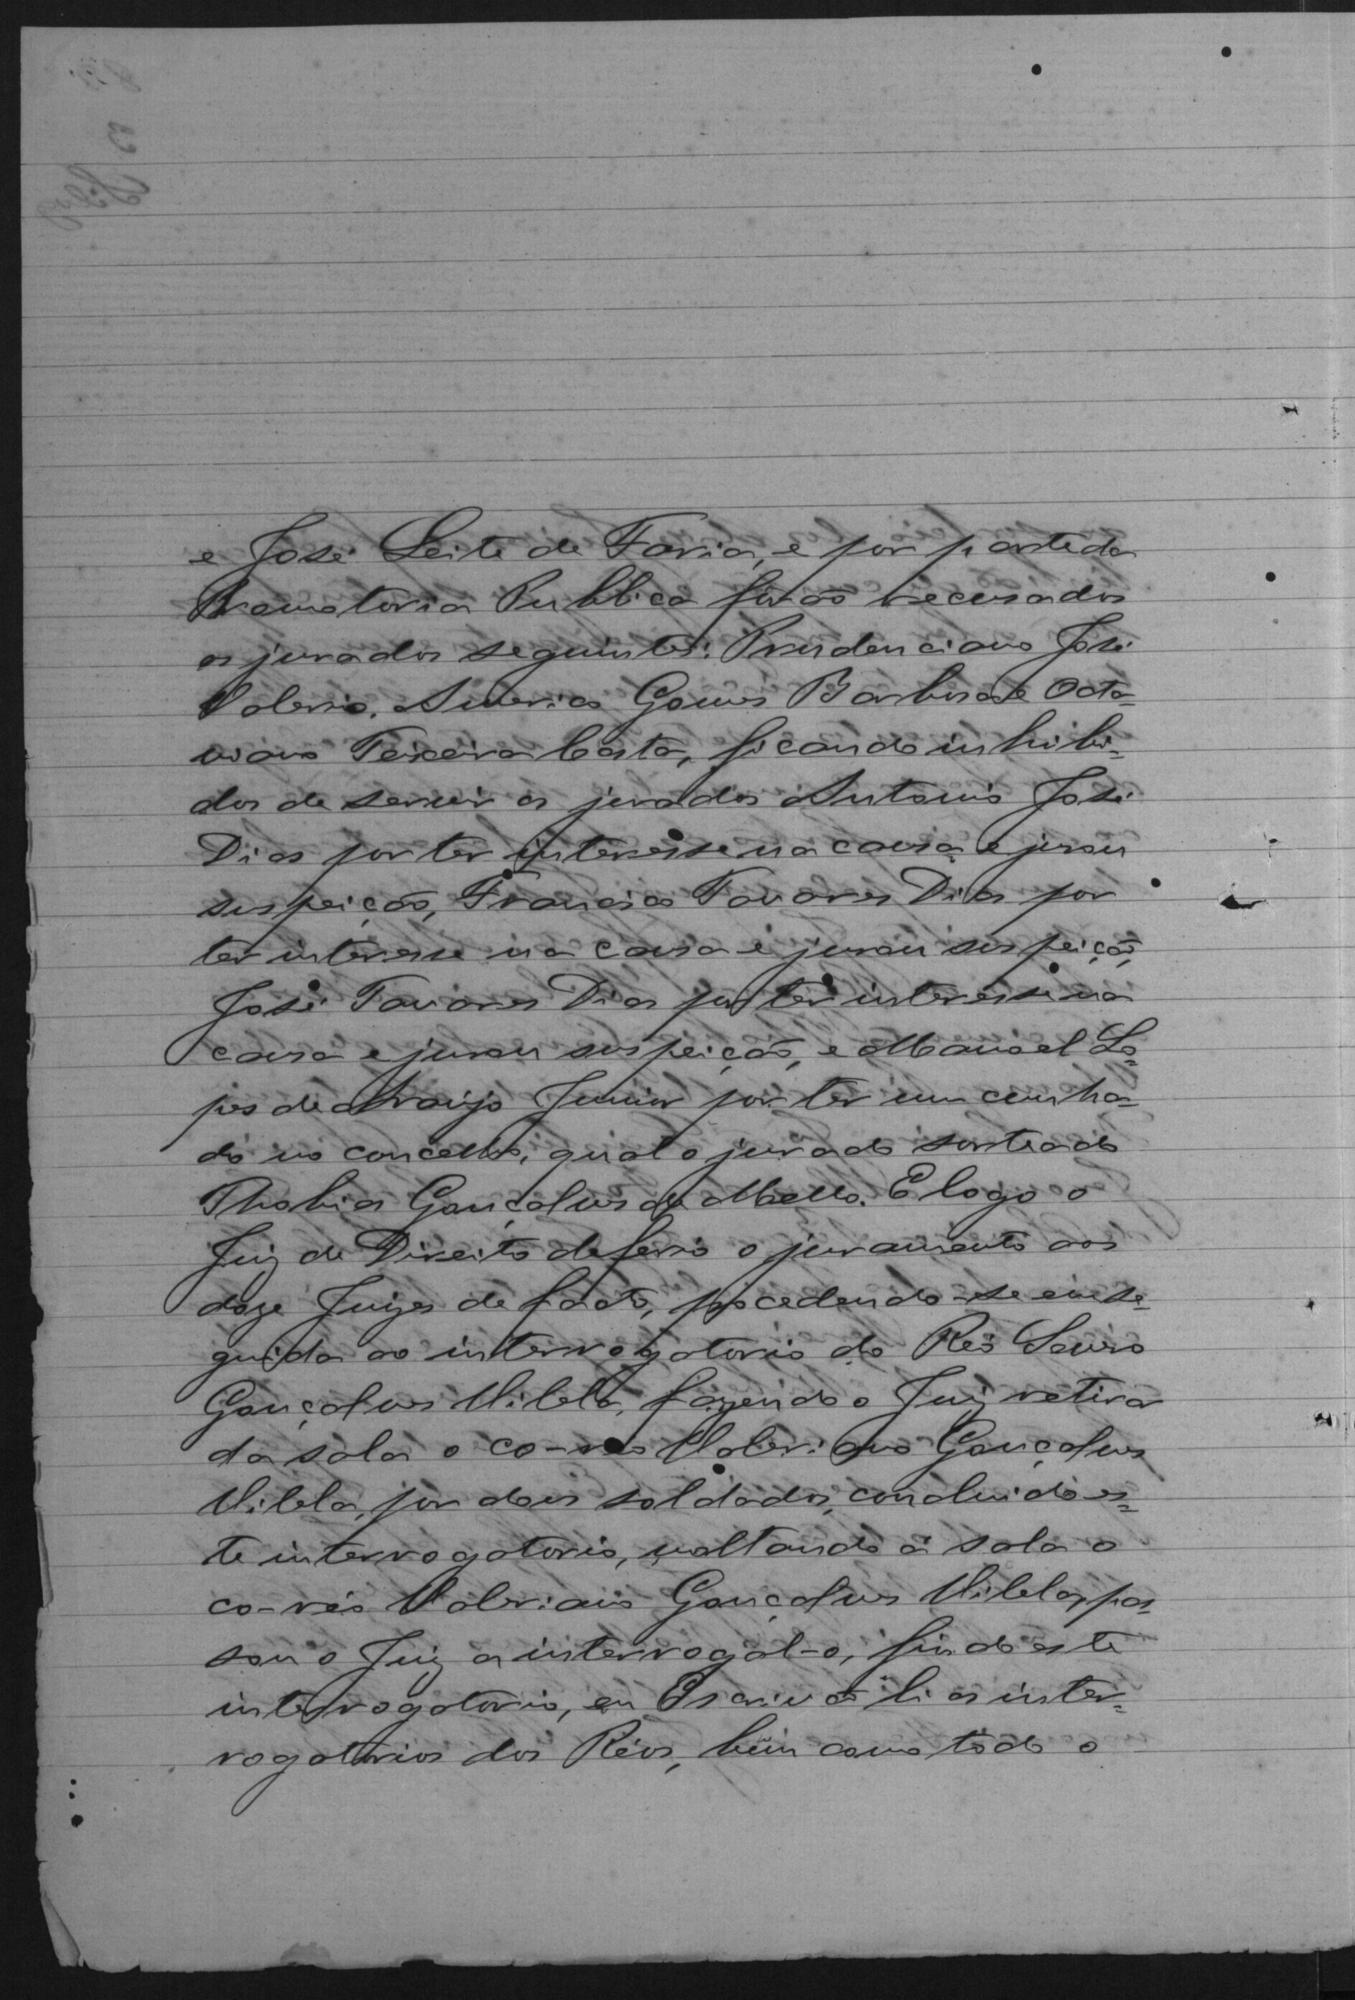 e José Leite de Faria, e por parte da
Promotoria Publica forão recusados
os jurados seguintes: Prudenciano José
Valerio, Americo Gomes Barbosa e Octa-
viano Teixeira Costa, ficando inhibi-
dos de servir os jurados Antonio José
Dias por ter interesse na causa e jurou
suspeição, Francisco Tavares Dias por
ter interesse na causa e jurou suspeição,
José Tavares Dias por ter interesse na
causa e jurou suspeição, e Manoel Lo-
pes de Araujo Junior por ter um cunha-
do no concelho, qual o jurado sorteado
Thobias Gonçalves de Mello. E logo o
Juiz de Direito deferio o juramento aos
doze Juizes de facto, procedendo-se em se-
guida ao interrogatorio do Réo Lauro
Gonçalves Vilela, fazendo o Juiz retirar
da sala o co-réo Valeriano Gonçalves
Vilela, por dous soldados, concluido es-
te interrogatorio, voltando á sala o
co-réo Valeriano Gonçalves Vilela, pas-
sou o Juiz a interrogal-o, findo este
interrogatorio, eu Escrivão li os inter-
rogatorios dos Réos, bem como todo o